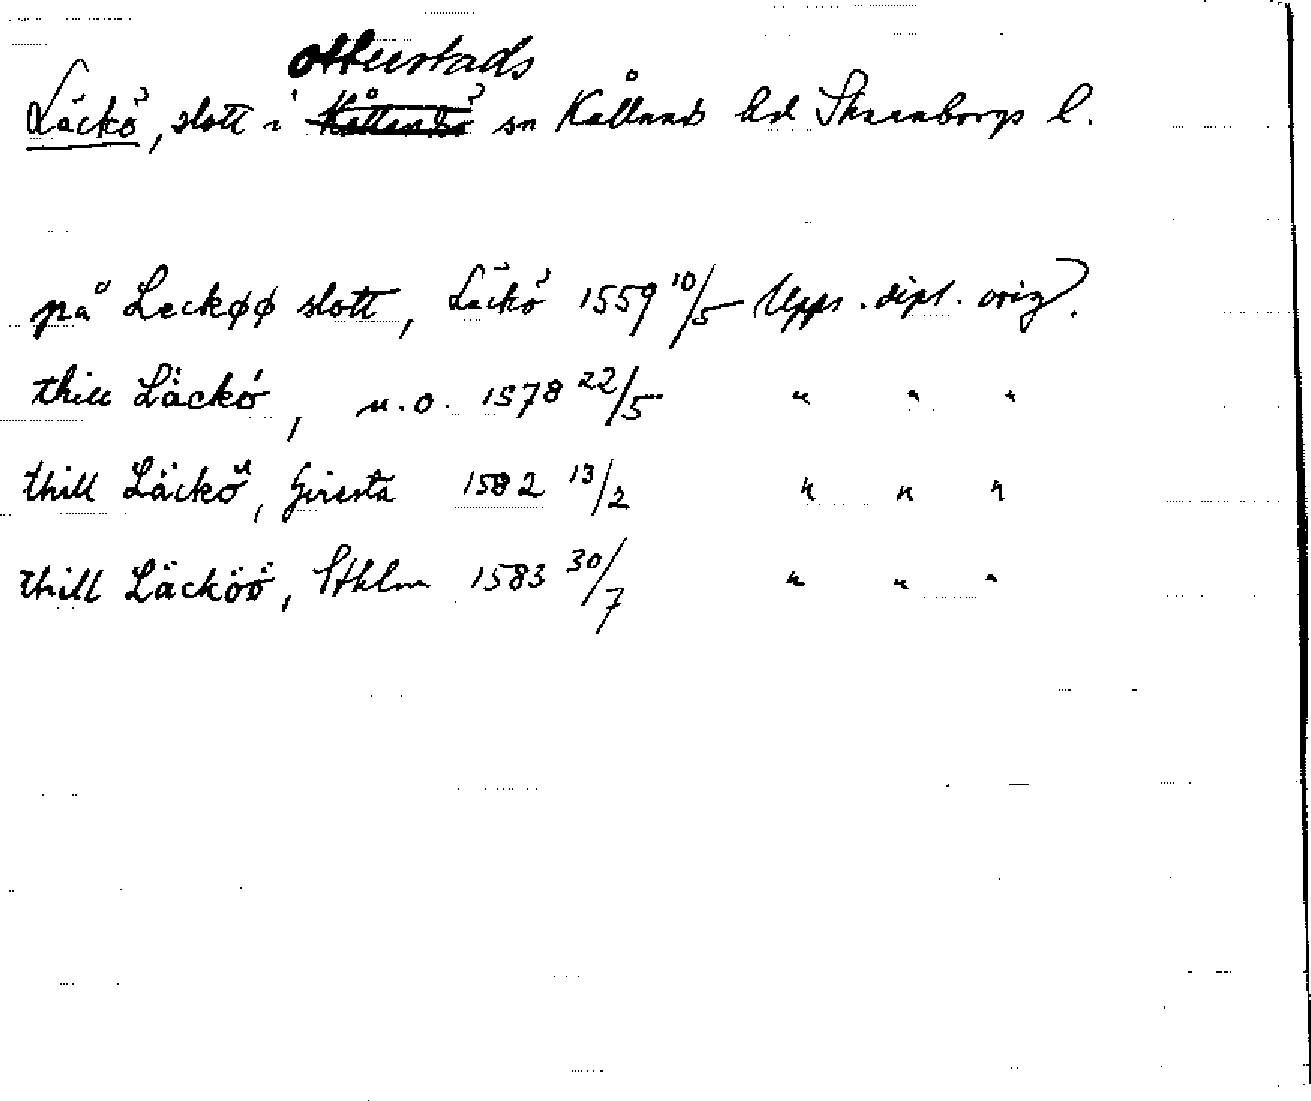 Otterstads
Läckö, slott i Kållandsö sn Kållands hd Skaraborgs l.
på Leckøø slott, Läckö 1559 10/5 Upps. dipl. orig.
thill Läckö, u.o. 1578 22/5 " " "
thill Läckö, Girista 1582 13/2 " " "
thill Läcköö, Sthlm 1583 30/7 " " "